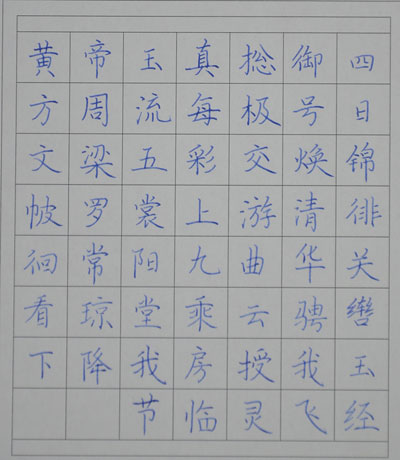 黄帝玉真捴御四
方周流每极号日
文梁五彩交焕锦
帔罗裳上游清徘
徊常阳九曲华关
看琼堂乘云骋辔
下降我房授我玉
节临灵飞经